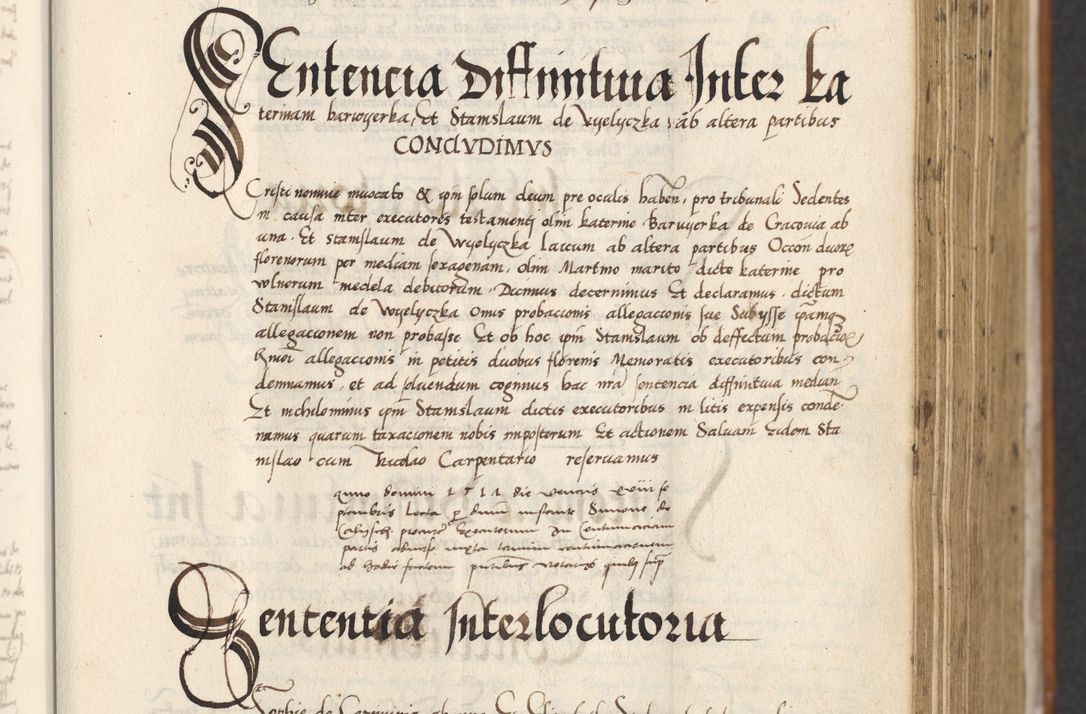 Sentencia Diffinitiua Inter ka
terinam barwyerka, Et Stanislaum de wyelyczka ab altera partibus
CONCLVDIMVS
Cristi nomine inuocato & ipm solum deum pre oculis haben. pro tribunali Sedentes
in causa inter executores testamenti olim katerine Barwyerka de Cracouia ab
vna. Et stanislaum de Wyelyczka laicum ab altera partibus Occon duorz
florenorum per mediam sexagenam, olim Martino marito dicte katerine pro
vulnerum medela debitorum. Dicimus decernimus Et declaramus. dictum
Stanislaum de Wyelyczka Onus probacionis allegacionis sue Subysse ipamqz
allegacionem non probasse Et ob hoc ipm Stanislaum ob deffectum probacionis
allegacionis in petitis duobus florenis Memoratis executoribus con
demnamus, et ad soluendum cogimus hac nra sentencia diffinitiua median
Et nichilominus ipm Stanislaum dictis executoribus in litis expensis conde
mnamus quarum taxacionem nobis imposterum Et actionem Saluam eidem Sta
nislao cum Nicolao Carpentario reseruamus
anno domini 1511 die veneris xviiii se
ptembris lecta p dnm instante Simone de
executorum In Contumaciam
partis aduerse iuxta contumaciam
ad
Sententia Interlocutoria